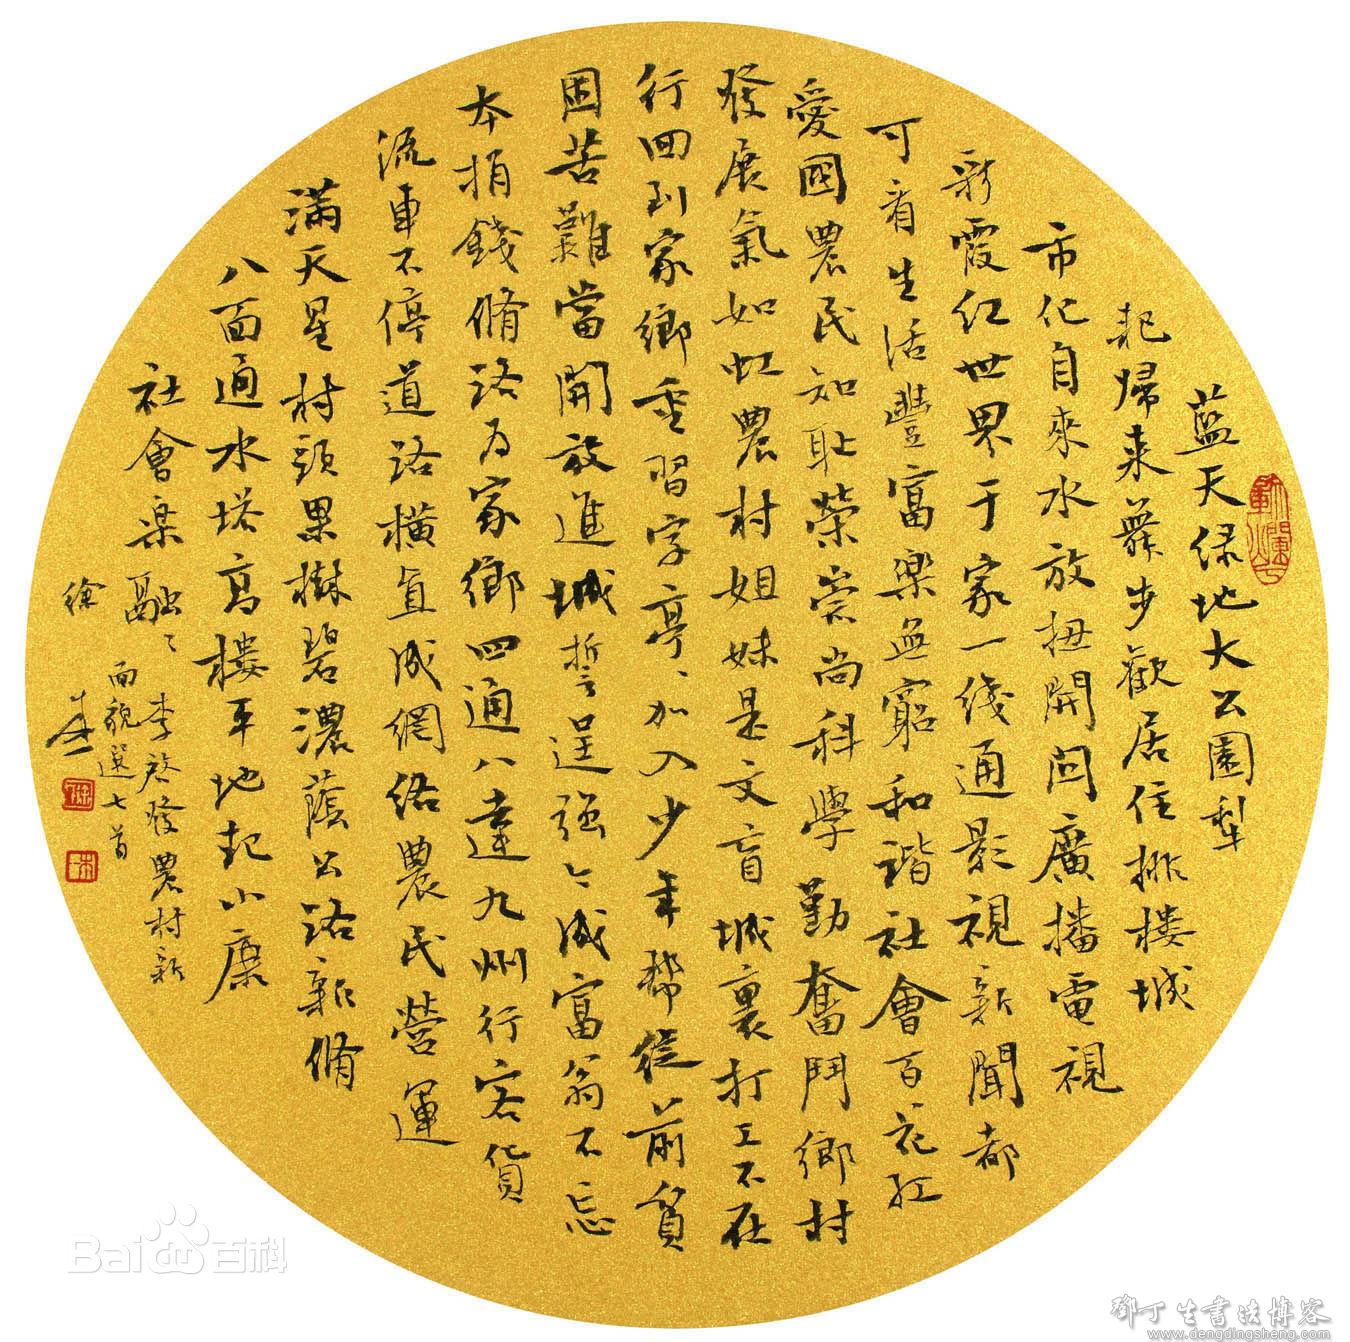 蓝天绿地大公園犁
耙歸来舞步歡居住排楼城
市化自來水放扭開闩廣播電視
彩霞红世界于家一线通影視新聞都
可看生活豐富樂無窮和谐社會百花红
愛國農民知耻荣崇尚科學勤奮鬥鄉村
發展氣如虹農村姐妹是文盲城裏打工不在
行回到家鄉重習字亭、加入少年帮從前貧
困苦難當開放進城誓言逞强〻成富翁不忘
本捐錢脩路为家鄉四通八達九州行客貨
流車不停道路橫直成網络農民營運
滿天星村頭果樹碧濃蔭公路新脩
八面通水塔高樓平地起小康
社會樂融〻
李啓發農村新
面貌選七首
徐
Bai 百科
鄧丁生書法博客
www.dengdingsheng.com